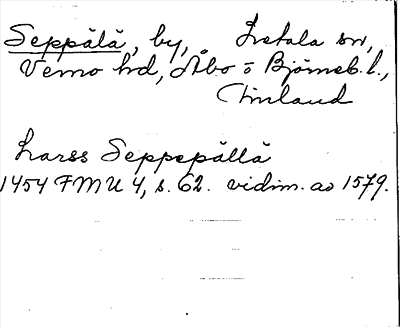 Seppälä, by, Letala sn,
Vemo hd, Åbo o Björneb. l.,
Finland
Larss Seppepällä
1454 FMU 4, s. 62. vidim. av 1579.